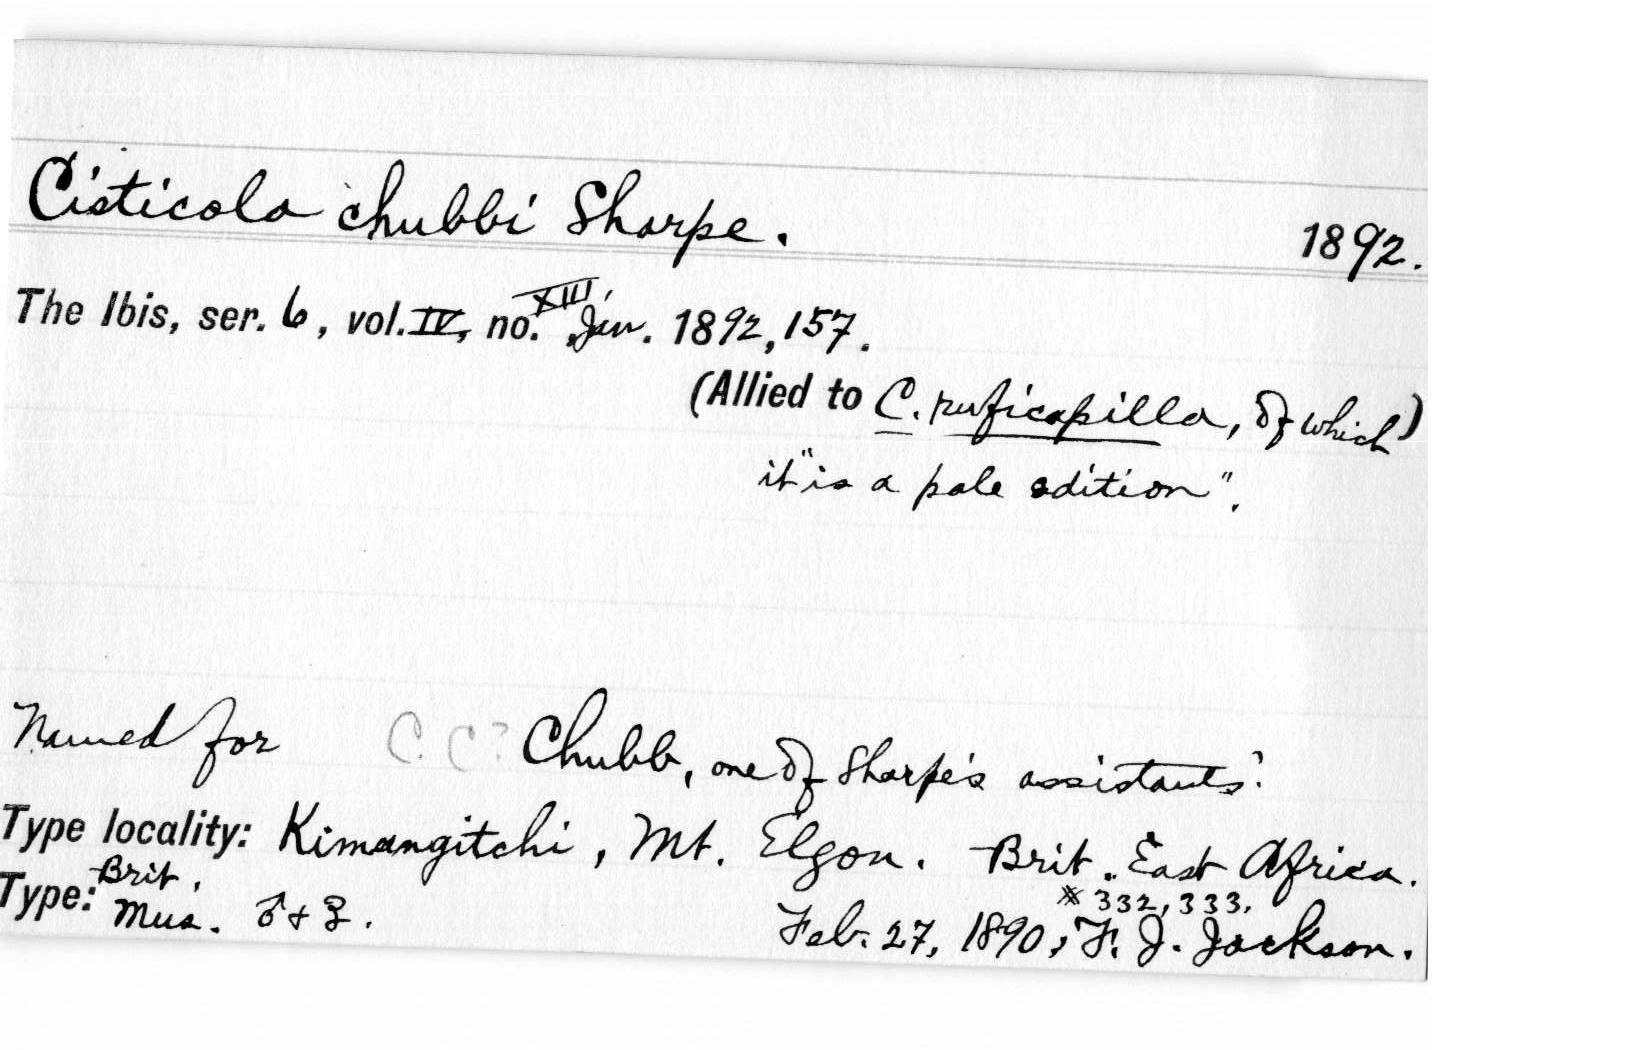 Cisticola chubbi Sharpe. 1892.
The Ibis, ser. 6, vol. IV, no. XIII, Jan. 1892, 157.
(Allied to C. ruficapilla, of which)
it "is a pale edition".
Named for C. C? Chubb, one of Sharpe's assistants.
Type locality: Kimangitchi, Mt. Elgon. Brit. East Africa.
Type: Brit. Mus. ♂ + ♀. # 332, 333.
Feb. 27, 1890, F. J. Jackson.